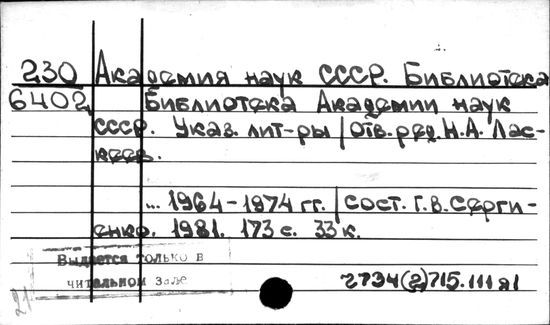 230 Академия наук СССР. Библиотека
6402 Библиотека Академии наук
СССР. Указ. лит-ры / Отв. ред. Н.А. Лас-
кеев.
... 1964-1974 гг. / сост. Г.В. Серги-
енко. 1981. 173 с. 33 к.
Выдается только в
читальном зале
2734(2)715.111я1
21